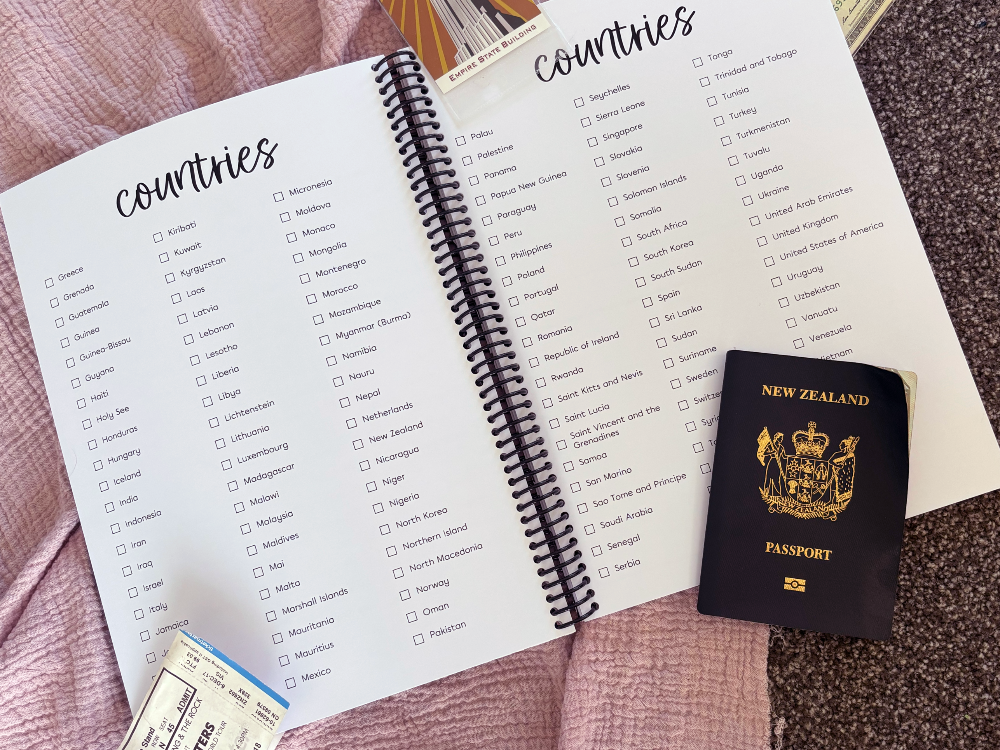 countries
Greece
Grenada
Guatemala
Guinea
Guinea-Bissou
Guyana
Haiti
Holy See
Honduras
Hungary
Iceland
India
Indonesia
Iran
Iraq
Israel
Italy
Jamaica
Kiribati
Kuwait
Kyrgyzstan
Laos
Latvia
Lebanon
Lesotho
Liberia
Libya
Lichtenstein
Lithuania
Luxembourg
Madagascar
Malawi
Malaysia
Maldives
Mai
Malta
Marshall Islands
Mauritania
Mauritius
Mexico
Micronesia
Moldova
Monaco
Mongolia
Montenegro
Morocco
Mozambique
Myanmar (Burma)
Namibia
Nauru
Nepal
Netherlands
New Zealand
Nicaragua
Niger
Nigeria
North Korea
Northern Island
North Macedonia
Norway
Oman
Pakistan
EMPIRE STATE BUILDING
countries
Palau
Palestine
Panama
Papua New Guinea
Paraguay
Peru
Philippines
Poland
Portugal
Qatar
Romania
Republic of Ireland
Rwanda
Saint Kitts and Nevis
Saint Lucia
Saint Vincent and the
Grenadines
Samoa
San Marino
Sao Tome and Principe
Saudi Arabia
Senegal
Serbia
Seychelles
Sierra Leone
Singapore
Slovakia
Slovenia
Solomon Islands
Somalia
South Africa
South Korea
South Sudan
Spain
Sri Lanka
Sudan
Suriname
Sweden
Tonga
Trinidad and Tobago
Tunisia
Turkey
Turkmenistan
Tuvalu
Uganda
Ukraine
United Arab Emirates
United Kingdom
United States of America
Uruguay
Uzbekistan
Vanuatu
Venezuela
NEW ZEALAND
PASSPORT
ADMIT
SEAT
45
& THE ROCK